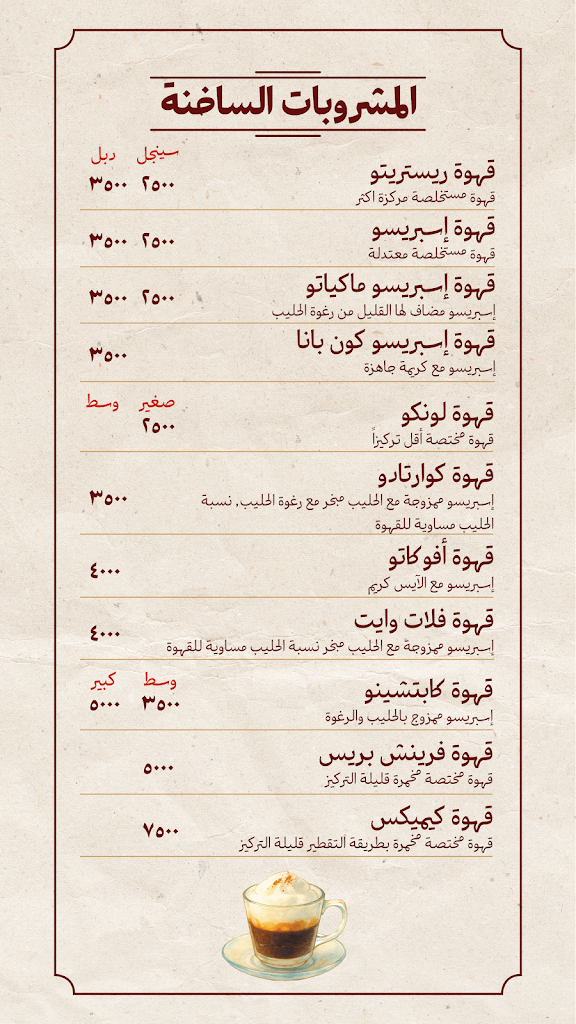 المشروبات الساخنة
سينجل دبل
قهوة ريستريتو ٢٥٠٠ ٣٥٠٠
قهوة مستخلصة مركزة اكثر
قهوة إسبريسو ٢٥٠٠ ٣٥٠٠
قهوة مستخلصة معتدلة
قهوة إسبريسو ماكياتو ٢٥٠٠ ٣٥٠٠
إسبريسو مضاف لها القليل من رغوة الحليب
قهوة إسبريسو كون بانا ٣٥٠٠
إسبريسو مع كريمة جاهزة
صغير وسط
قهوة لونكو ٢٥٠٠
قهوة مختصة أقل تركيزاً
قهوة كوارتادو ٣٥٠٠
إسبريسو ممزوجة مع الحليب مبخر مع رغوة الحليب, نسبة
الحليب مساوية للقهوة
قهوة أفوكاتو ٤٠٠٠
إسبريسو مع الآيس كريم
قهوة فلات وايت ٤٠٠٠
إسبريسو ممزوجة مع الحليب مبخر نسبة الحليب مساوية للقهوة
وسط كبير
قهوة كابتشينو ٣٥٠٠ ٥٠٠٠
إسبريسو ممزوج بالحليب والرغوة
قهوة فرينش بريس ٥٠٠٠
قهوة مختصة مخمرة قليلة التركيز
قهوة كيميكس ٧٥٠٠
قهوة مختصة مخمرة بطريقة التقطير قليلة التركيز